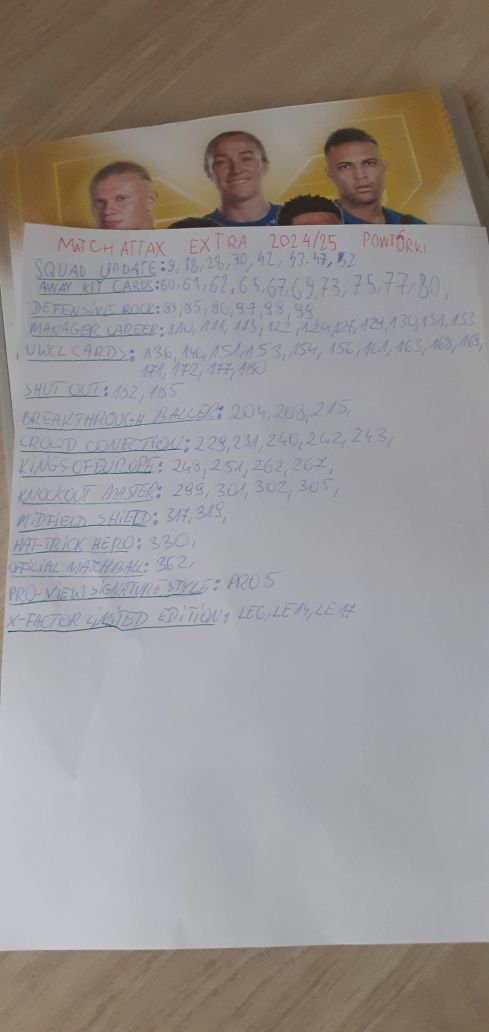 MATCH ATTAX EXTRA 2024/25 POWTÓRKI
SQUAD UPDATE: 9, 18, 28, 30, 42, 43, 47, 52
AWAY KIT CARDS: 60, 61, 62, 65, 67, 69, 73, 75, 77, 80,
DEFENSIVE ROCK: 83, 85, 86, 97, 98, 99
MANAGER CAREER: 110, 111, 113, 122, 124, 127, 129, 130, 131, 133
UWCL CARDS: 136, 146, 151, 153, 154, 156, 161, 163, 168, 169,
171, 172, 177, 180
SHUT OUT: 182, 185
BREAKTHROUGH BALLER: 204, 208, 215,
CROWD CONECTION: 229, 231, 240, 242, 243,
KINGS OF EUROPE: 249, 251, 262, 267,
KNOCKOUT MASTER: 299, 301, 302, 305,
MIDFIELD SHIELD: 317, 319,
HAT-TRICK HERO: 330,
OFFICIAL MATCHBALL: 362,
PRO-VIEW SIGNATURE STYLE: PRO 5
X-FACTOR LIMITED EDITION: LE6, LE14, LE17